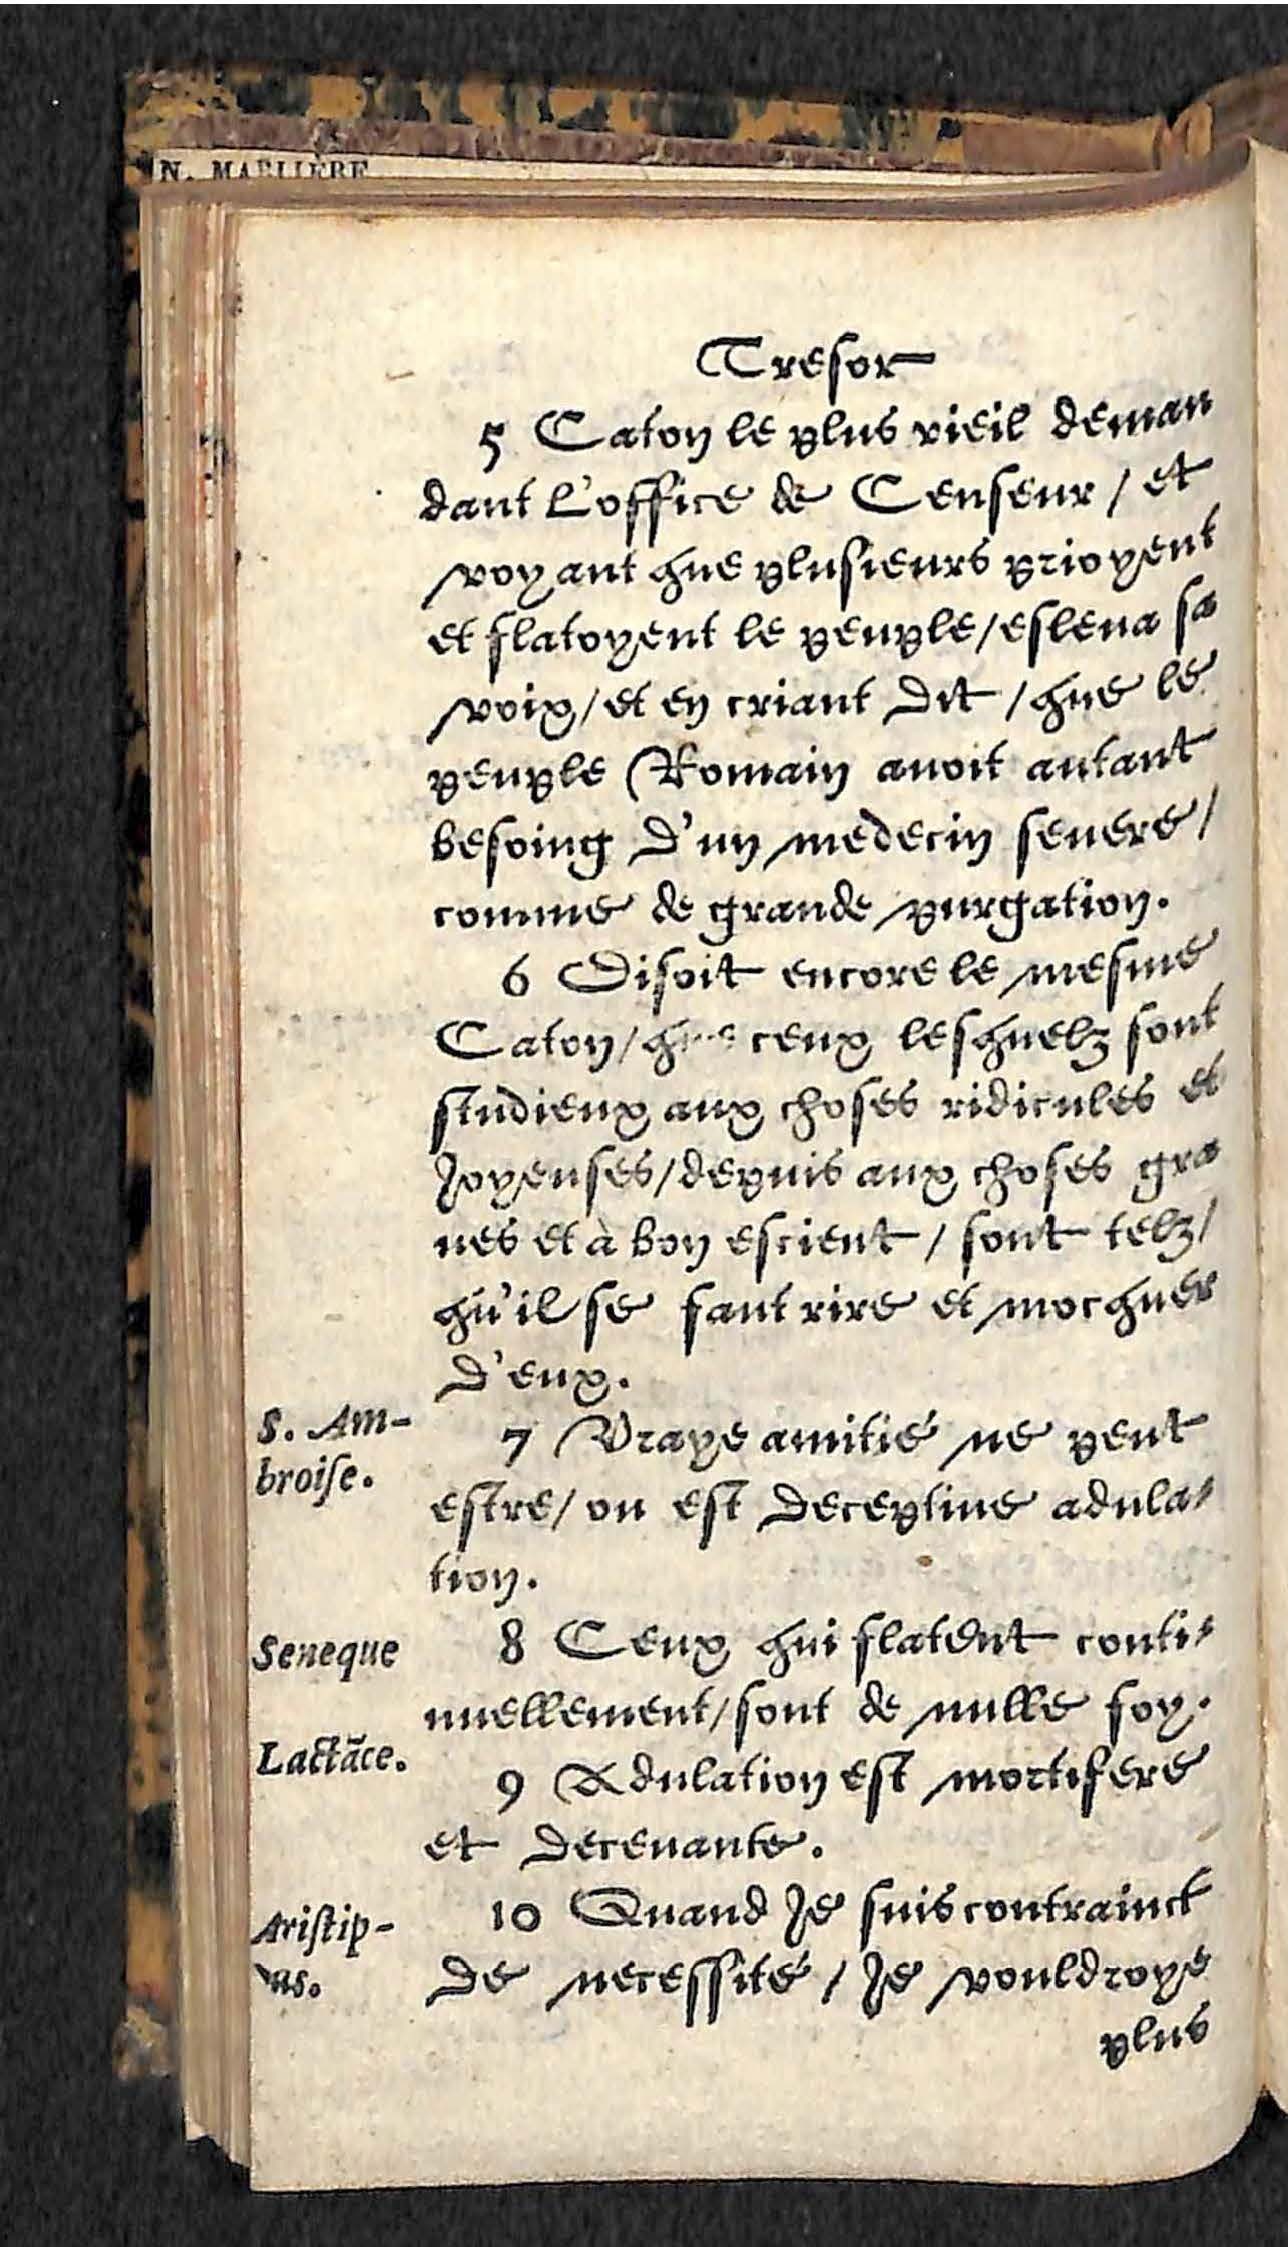 N. MABILIÈRE
Tresor
5 Caton le plus vieil deman
dant l'office de Censeur / et
voyant que plusieurs prioyent
et flatoyent le peuple / esleua sa
voix / et en criant dit / que le
peuple Romain auoit autant
besoing d'un medecin seuere /
comme de grande purgation.
6 Disoit encore le mesme
Caton / que ceux lesquelz sont
studieux aux choses ridicules et
Joyeuses / depuis aux choses gra
ues et à bon escient / sont telz /
qu'il se faut rire et mocquer
d'eux.
S. Am-
broise.
7 Vraye amitié ne peut
estre / ou est deceptiue adula-
tion.
Seneque
8 Ceux qui flatent conti-
nuellement / sont de nulle foy.
Lactāce.
9 Adulation est mortifere
et deceuante.
Aristip-
us.
10 Quand Je suis contrainct
de necessité / Je vouldroye
plus